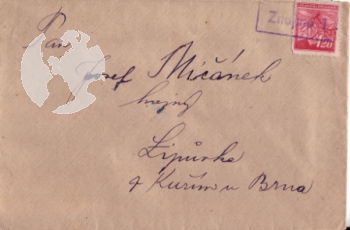 Pan
Josef Míčánek
krejčí
Lipůvka
p Kuřím u Brna
1.20